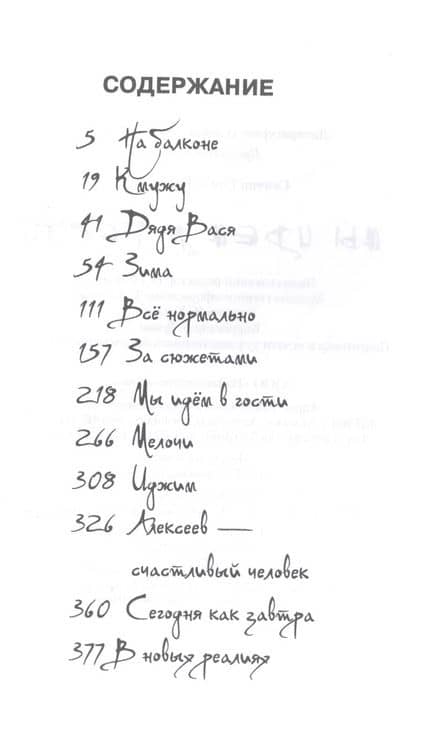 СОДЕРЖАНИЕ
5 На балконе
19 К мужу
41 Дядя Вася
54 Зима
111 Всё нормально
157 За сюжетами
218 Мы идём в гости
266 Мелочи
308 Иджим
326 Алексеев —
счастливый человек
360 Сегодня как завтра
377 В новых реалиях